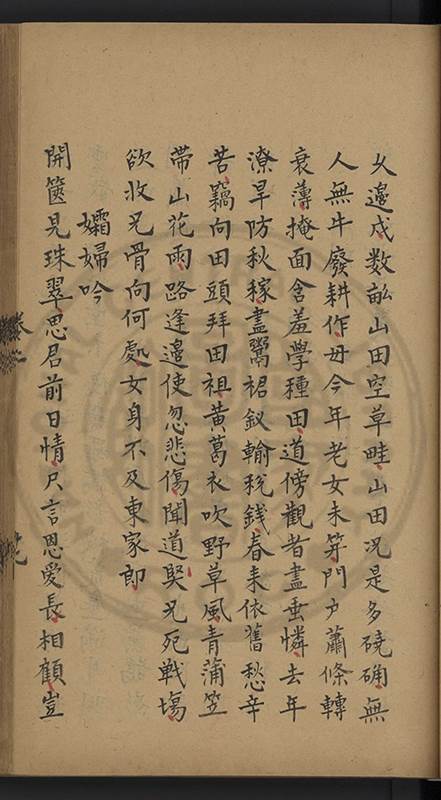 久邊戍数畝山田空草畦山田况是多磽确無
人無牛廢耕作毋今年老女未笄門户蕭條轉
衰薄掩面含羞學種田道傍觀者盡垂憐去年
潦旱防秋稼盡鬻裙釵輸稅錢春来依舊愁辛
苦竊向田頭拜田祖黄葛衣吹野草風青蒲笠
帶山花雨路逢邊使忽悲傷聞道娶兄死戰場
欲收兄骨向何處女身不及東家郎
孀婦吟
開篋見珠翠思君前日情只言恩愛長相顧豈